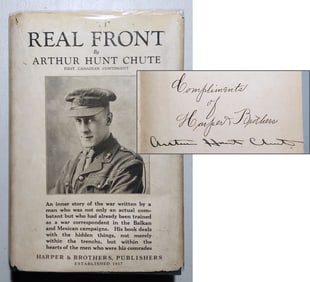 REAL FRONT
By
ARTHUR HUNT CHUTE
FIRST CANADIAN CONTINGENT
An inner story of the war written by a
man who was not only an actual com-
batant but who had already been trained
as a war correspondent in the Balkan
and Mexican campaigns. His book deals
with the hidden things, not merely
within the trenches, but within the
hearts of the men who were his comrades
HARPER & BROTHERS, PUBLISHERS
ESTABLISHED 1817
Compliments
of
Harper & Brothers
Arthur Hunt Chute